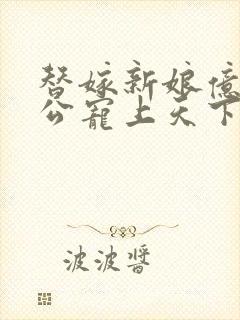 替嫁新娘億
公寵上天下
波波醬